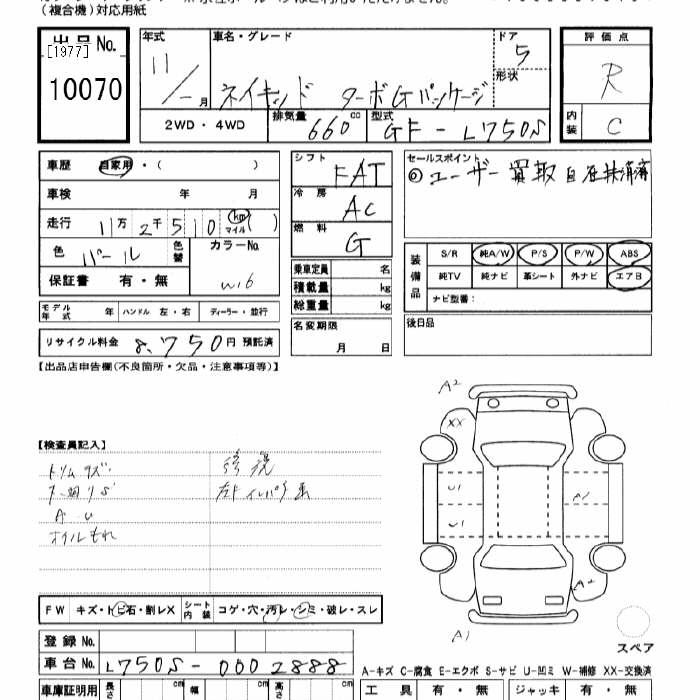 (複合機)対応用紙
出品No.
[1977]
10070
年式
11/-月
車名・グレード
ネイキッド ターボGパッケージ
ドア
5
形状
評価点
R
内装
C
2WD・4WD
排気量
660 cc
型式
GF-L750S
車歴 自家用・( )
車検 年 月
走行 11万2千510 (km マイル)
色 パール 色替
カラーNo. W16
保証書 有・無
シフト FAT
冷房 AC
燃料 G
乗車定員 名
積載量 kg
総重量 kg
セールスポイント
◎ユーザー買取 自在抹消済
装備品
S/R 純A/W P/S P/W ABS
純TV 純ナビ 革シート 外ナビ エアB
ナビ型番:
モデル年式 年 ハンドル 左・右 ディーラー・並行
リサイクル料金 8,750円 預託済
名変期限 月 日
後日品
【出品店申告欄(不良箇所・欠品・注意事項等)】
A2
XX
U1
A1
U1
A2
A1
【検査員記入】
A U
オイルもれ
FW キズ・トビ石・割レX シート内装 コゲ・穴・汚レ・シミ・破レ・スレ
スペア
登録No.
車台No. L750S-0002888
A-キズ C-腐食 E-エクボ S-サビ U-凹ミ W-補修 XX-交換済
車庫証明用 長さ cm 幅 cm 高さ cm
工具 有・無 ジャッキ 有・無